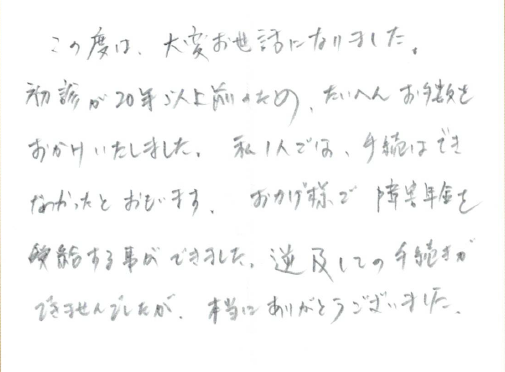 この度は、大変お世話になりました。
初診が20年以上前のため、たいへんお手数を
おかけいたしました。私1人では、手続はでき
なかったとおもいます。おかげ様で障害年金を
受給する事ができました。逆及しての手続きが
できませんでしたが、本当にありがとうございました。